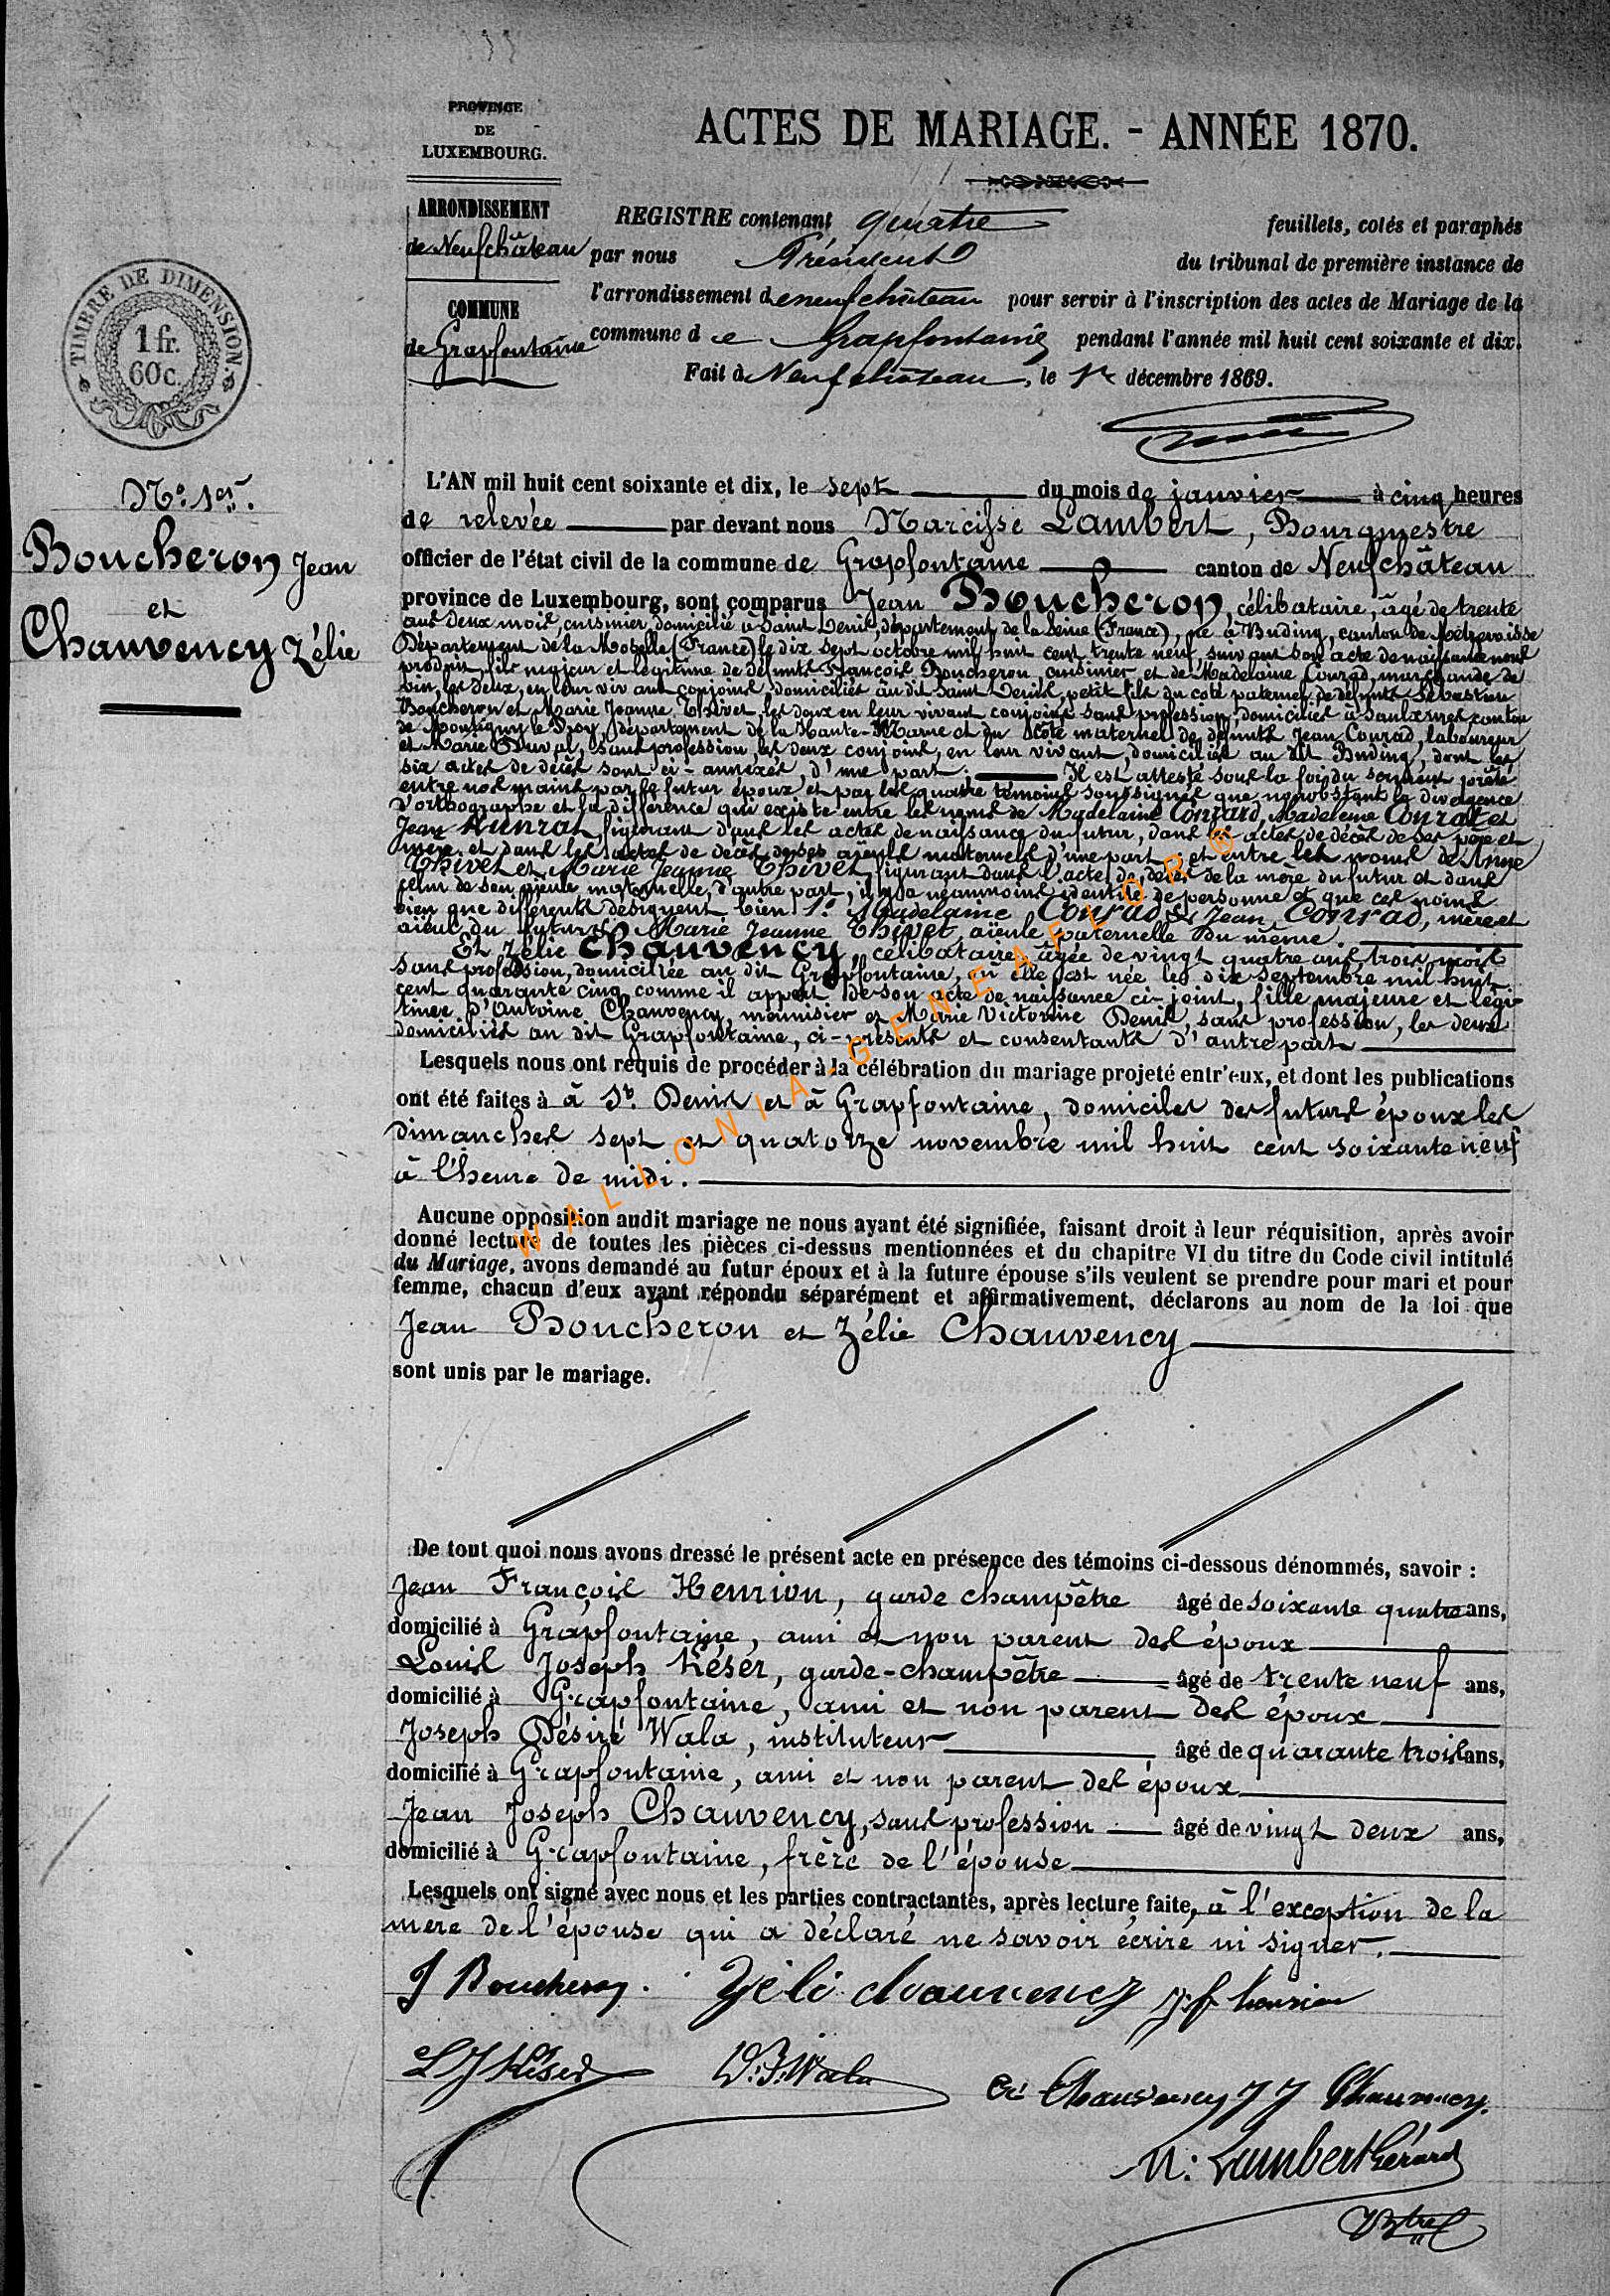 PROVINCE
DE
LUXEMBOURG.
ACTES DE MARIAGE. - ANNÉE 1870.
ARRONDISSEMENT
de Neufchâteau
COMMUNE
de Grapfontaine
REGISTRE contenant quatre feuillets, cotés et paraphés
par nous Président du tribunal de première instance de
l'arrondissement de neufchâteau pour servir à l'inscription des actes de Mariage de la
commune de Grapfontaine pendant l'année mil huit cent soixante et dix.
Fait à Neufchâteau, le 1er décembre 1869.
TIMBRE DE DIMENSION.
1 fr.
60 c.
No. 1er.
Boucheron Jean
et
Chauvency Zélie
L'AN mil huit cent soixante et dix, le sept du mois de janvier à cinq heures
de relevée par devant nous Narcisse Lambert, Bourgmestre
officier de l'état civil de la commune de Grapfontaine canton de Neufchâteau
province de Luxembourg, sont comparus Jean Boucheron, célibataire, âgé de trente
ans deux mois, cuisinier, domicilié à Saint Denis, département de la Seine (France), né à Buding, canton de Metzervisse
Département de la Moselle (France) le dix sept octobre mil huit cent trente neuf, suivant son acte de naissance nous
produit, fils majeur et légitime de défunts François Boucheron, cuisinier et de Madelaine Conrad, marchande de
vin, les deux, en leur vivant conjoints, domiciliés au dit Saint Denis, petit fils du coté paternel de défunts Sébastien
Boucheron et Marie Jeanne Thivet, les deux en leur vivant conjoints sans profession, domiciliés à Saulxures canton
de Montigny le Roy, département de la Haute-Marne et du côté maternel de défunts Jean Conrad, laboureur
et Marie Duval, sans profession, les deux conjoints, en leur vivant, domiciliés au dit Buding, dont les
six actes de décès sont ci-annexés, d'une part; Il est attesté sous la foi du serment prêté
entre nos mains par le futur époux et par les quatre témoins soussignés que nonobstant la divergence
d'orthographe et la différence qui existe entre les noms de Madelaine Conrard, Madeleine Conrat et
Jean Kunrat, figurant dans les actes de naissance du futur, dans les actes de décès de ses père et
mère et dans les actes de décès de ses aïeuls maternels d'une part; et entre les noms de Anne
Thivet et Marie Jeanne Thivet, figurant dans l'acte de décès de la mère du futur et dans
celui de son aïeule maternelle, d'autre part, il y a néanmoins identité de personne et que ces noms
bien que différents désignent bien 1o. Madelaine Conrad & Jean Conrad, mère et
aïeul du futur Marie Jeanne Thivet, aïeule paternelle du même.
Et Zélie Chauvency, célibataire, âgée de vingt quatre ans trois mois
sans profession, domiciliée au dit Grapfontaine, où elle est née le dix septembre mil huit
cent quarante cinq comme il appert de son acte de naissance ci-joint, fille majeure et légi-
time d'Antoine Chauvency, menuisier et Marie Victorine Denis, sans profession, les deux
domiciliés au dit Grapfontaine, ci-présents et consentants d'autre part
Lesquels nous ont requis de procéder à la célébration du mariage projeté entr'eux, et dont les publications
ont été faites à à St. Denis et à Grapfontaine, domiciles des futurs époux les
dimanches sept et quatorze novembre mil huit cent soixante neuf
à l'heure de midi.
Aucune opposition audit mariage ne nous ayant été signifiée, faisant droit à leur réquisition, après avoir
donné lecture de toutes les pièces ci-dessus mentionnées et du chapitre VI du titre du Code civil intitulé
du Mariage, avons demandé au futur époux et à la future épouse s'ils veulent se prendre pour mari et pour
femme, chacun d'eux ayant répondu séparément et affirmativement, déclarons au nom de la loi que
Jean Boucheron et Zélie Chauvency
sont unis par le mariage.
De tout quoi nous avons dressé le présent acte en présence des témoins ci-dessous dénommés, savoir :
Jean François Henrion, garde champêtre âgé de soixante quatre ans,
domicilié à Grapfontaine, ami et non parent des époux
Louis Joseph Késer, garde-champêtre âgé de trente neuf ans,
domicilié à Grapfontaine, ami et non parent des époux
Joseph Désiré Wala, instituteur âgé de quarante trois ans,
domicilié à Grapfontaine, ami et non parent des époux
Jean Joseph Chauvency, sans profession âgé de vingt deux ans,
domicilié à Grapfontaine, frère de l'épouse
Lesquels ont signé avec nous et les parties contractantes, après lecture faite, à l'exception de la
mère de l'épouse qui a déclaré ne savoir écrire ni signer.
J Boucheron. Zéli chauvency j. f. henrion
L J Késer D. J. Wala Chauvency J J Chauvency.
N: Lambert Gérard
WALLONIA-GENEAFLOR®